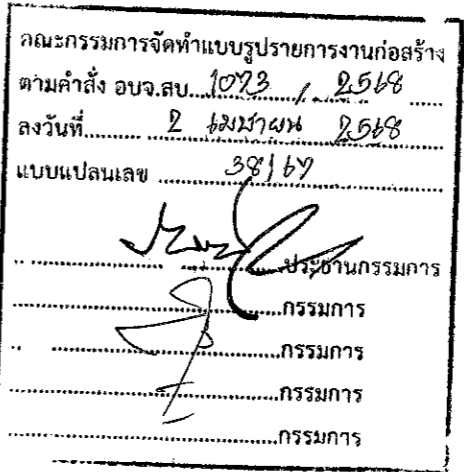 คณะกรรมการจัดทำแบบรูปรายการงานก่อสร้าง
ตามคำสั่ง อบจ.สบ. 1073 / 2568
ลงวันที่ 2 เมษายน 2568
แบบแปลนเลข 38/67
ประธานกรรมการ
กรรมการ
กรรมการ
กรรมการ
กรรมการ